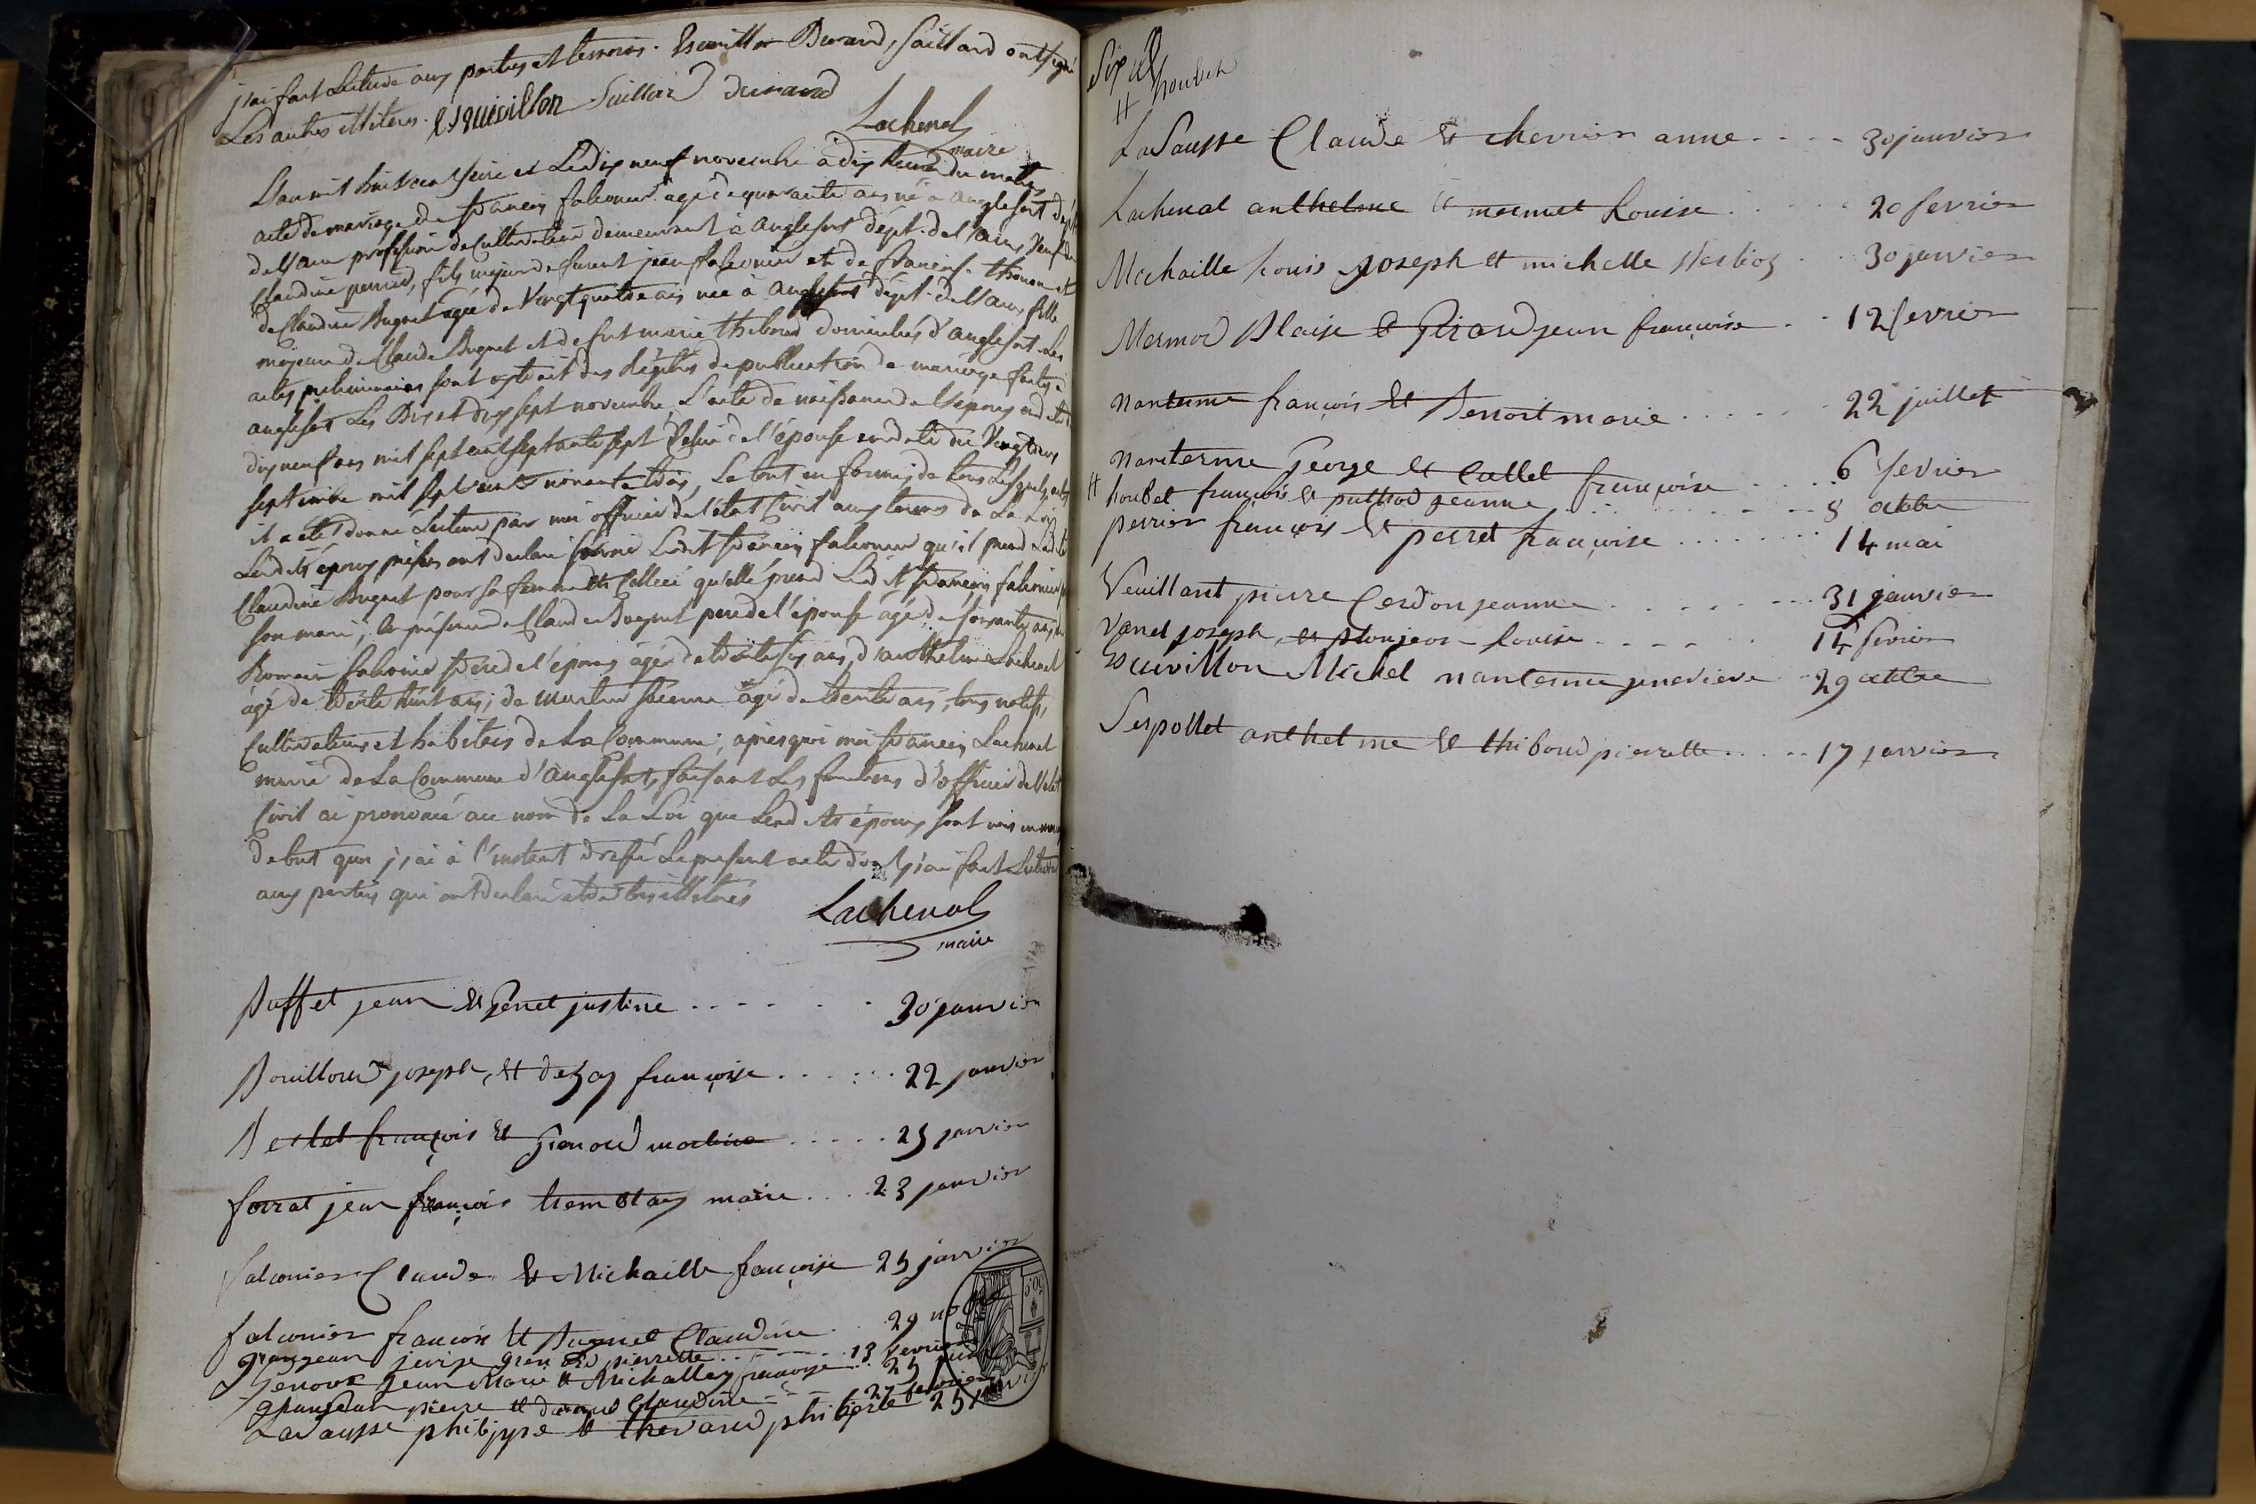 j'ai fait Lecture aux parties et temoins. Escuvillon Durand, Saillard ont signé
Les autres illiteres. Escuvillon Saillard durand
Lachenal
maire
L'an mil huit cent seize et Le dix neuf novembre à dix heures du matin
acte de mariage de françois falconier agé de quarante ans né à anglefort dépt
de l'ain profession de Cultivateur demeurant à anglefort dépt. de l'ain, veuf de
Claudine perrier, fils majeur de furent jean falconier et de françoise thomasset
de Claudine Buguet agée de Vingt quatre ans née à anglefort dépt. de l'ain, fille
majeure de Claude Buguet et de fut marie thiboud domiciliés d'anglefort. Les
actes preliminaires sont extrait des régistres de publication de mariage faites à
anglefort Les Dix et dix sept novembre, L'acte de naissance de l'époux en date du
dix neuf mil sept cent septante sept Celui de l'épouse en date du Vingt
septembre mil sept cents nonante trois, Le tout en forme, de tous Lesquels actes
il a été donné Lecture par moi officier de l'état Civil aux termes de La Loi
Lesdits époux présens ont declaré savoir Ledit françois falconier qu'il prend Ladite
Claudine Buguet pour sa femme et Celleci qu'elle prend Ledit françois falconier
son mari, en présence de Claude Buguet pere de l'épouse âgé de soixante ans,
Romain falconier frere de l'époux âgé de trente six ans, d'anthelme Lachenal
âgé de trente huit ans, de agé de trente ans, tous natifs,
Cultivateurs et habitans de La Commune, apres quoi moi françois Lachenal
maire de La Commune d'anglefort, faisant Les fonctions d'officier de l'etat
Civil ai prononcé au nom de La Loi que Lesdits époux sont unis en mariage
de tout quoi j'ai à l'instant dressé Le present acte dont j'ai fait Lecture
aux parties qui ont declaré être tous illiteres
Lachenal
maire
Buffet jean et Genet justine ....... 30 janvier
Bouilloud joseph, et dezay françoise ...... 22 janvier
Bertet françois et Grenoud marline ..... 25 janvier
forrat jean françois tremblay marie .... 23 janvier
falconier Claude et Michaille françoise 25 janvier
falconier françois et Buguet Claudine .. 29 nobre
Grosjean pierrette ..... 13 fevrier
Genoud Jean Marie et Michallet françoise .. 25 juin
pierre et durand Claudine .. 27 fevrier
Lasausse philippe et thevard philiberte 25
houbet
Lasausse Claude et chevrier anne .... 30 janvier
Lachenal anthelme et mermet Louise ..... 20 fevrier
Michaille Louis joseph et michelle Berlioz .. 30 janvier
Mermod Blaise et Girard jean françoise .. 12 fevrier
Nanterme françois et Benoit marie ...... 22 juillet
Nanterme George et Cullet françoise .... 6 fevrier
houbet françois et puthod jeanne ........ 8 octobre
perrier françois et perret françoise ....... 14 mai
Veuillant pierre Cerdon jeanne ........ 31 janvier
Vanel joseph et plonjeon Louise ..... 14 fevrier
Escuvillon Michel nanterme genevieve . 29 octobre
Serpollet anthelme et thiboud pierrette .... 17 janvier